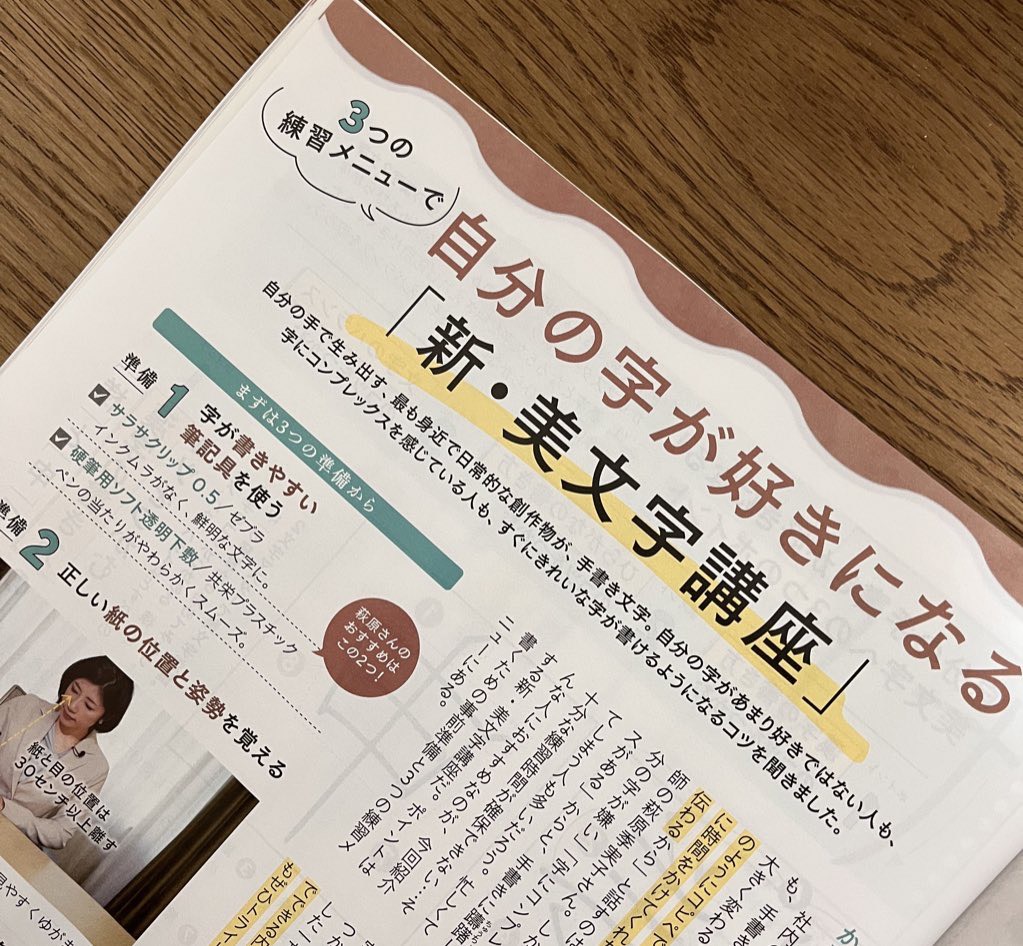 3つの
練習メニューで
自分の字が好きになる
「新・美文字講座」
自分の手で生み出す、最も身近で日常的な創作物が、手書き文字。自分の字があまり好きではない人も、
字にコンプレックスを感じている人も、すぐにきれいな字が書けるようになるコツを聞きました。
まずは3つの準備から
準備 1 字が書きやすい
筆記具を使う
サラサクリップ0.5/ゼブラ
インクムラがなく、鮮明な文字に。
硬筆用ソフト透明下敷/共栄プラスチック
ペンの当たりがやわらかくスムーズ。
萩原さんの
おすすめは
この2つ!
準備 2 正しい紙の位置と姿勢を覚える
紙と目の位置は
30センチ以上離す
見やすくゆが
も、社内の
大きく変わる
のようにコピペで
に時間をかけてくれ
伝わるから」と話すのは
師の萩原季実子さん。
分の字が嫌い」「字に
スがある」から、手書き
てしまう人も多いだろう。忙しくて
十分な練習時間が確保できない…そ
んな人におすすめなのが、今回紹介
する新・美文字講座だ。ポイントは
書くための事前準備と3つの練習メ
ニューにある。
できる内
もぜひトライ